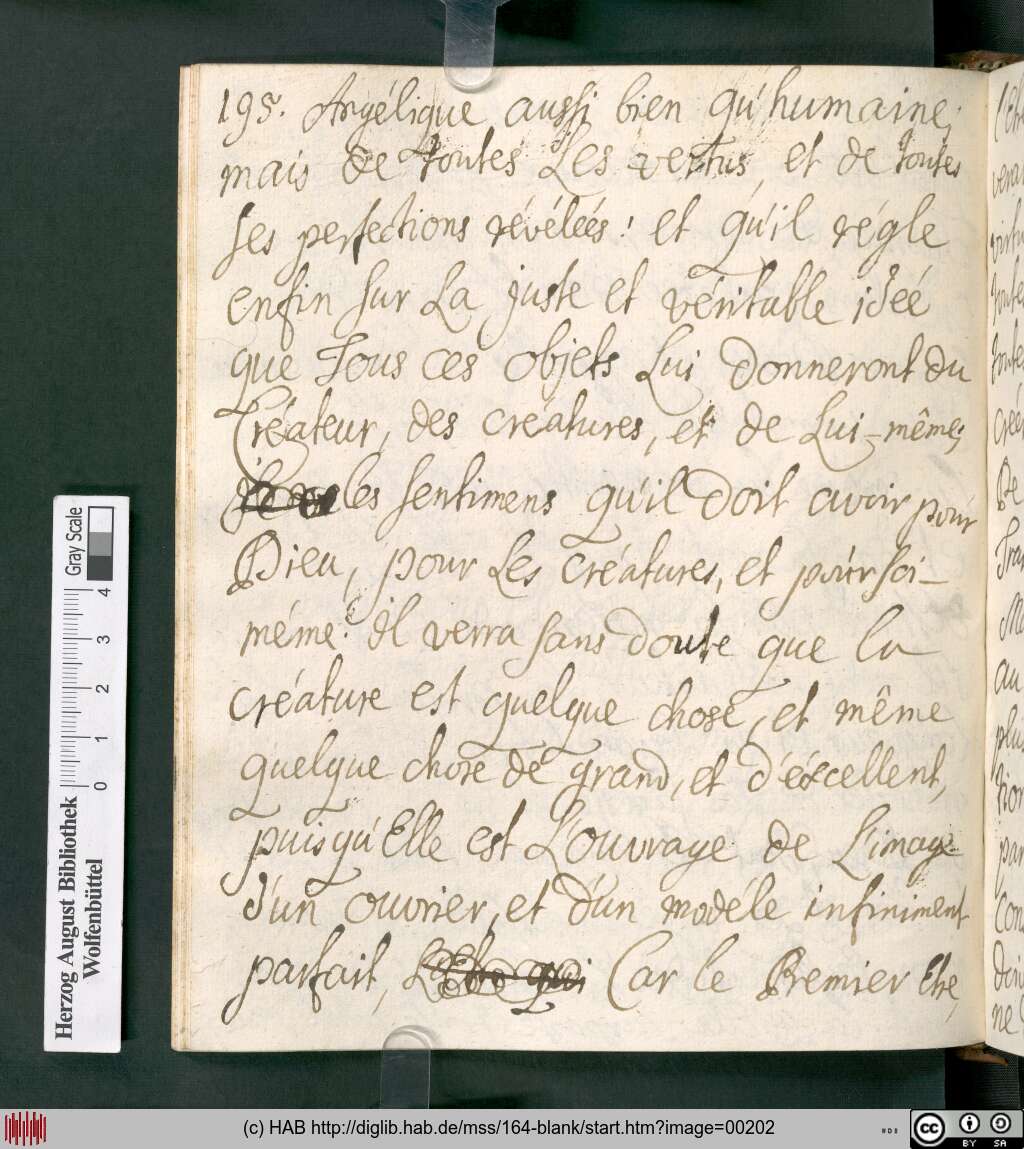 195. Angélique aussi bien qu'humaine;
mais de toutes Les vertus, et de toutes
ses perfections révéleés! et qu'il régle
enfin sur La juste et véritable ideé
que Tous ces objets Lui donneront du
Créateur, des créatures, et de Lui-même;
les sentimens qu'il doit avoir pour
Dieu, pour Les créatures, et pour soi-
méme. il verra sans doute que la
créature est quelque chose, et même
quelque chose de grand, et d'éxcellent,
puisqu'Elle est L'ouvrage de L'image
d'un ouvrier, et d'un modéle infiniment
parfait, Car le Premier Etre,
Herzog August Bibliothek
Wolfenbüttel
Gray Scale
0 1 2 3 4
(c) HAB http://diglib.hab.de/mss/164-blank/start.htm?image=00202
cc BY SA